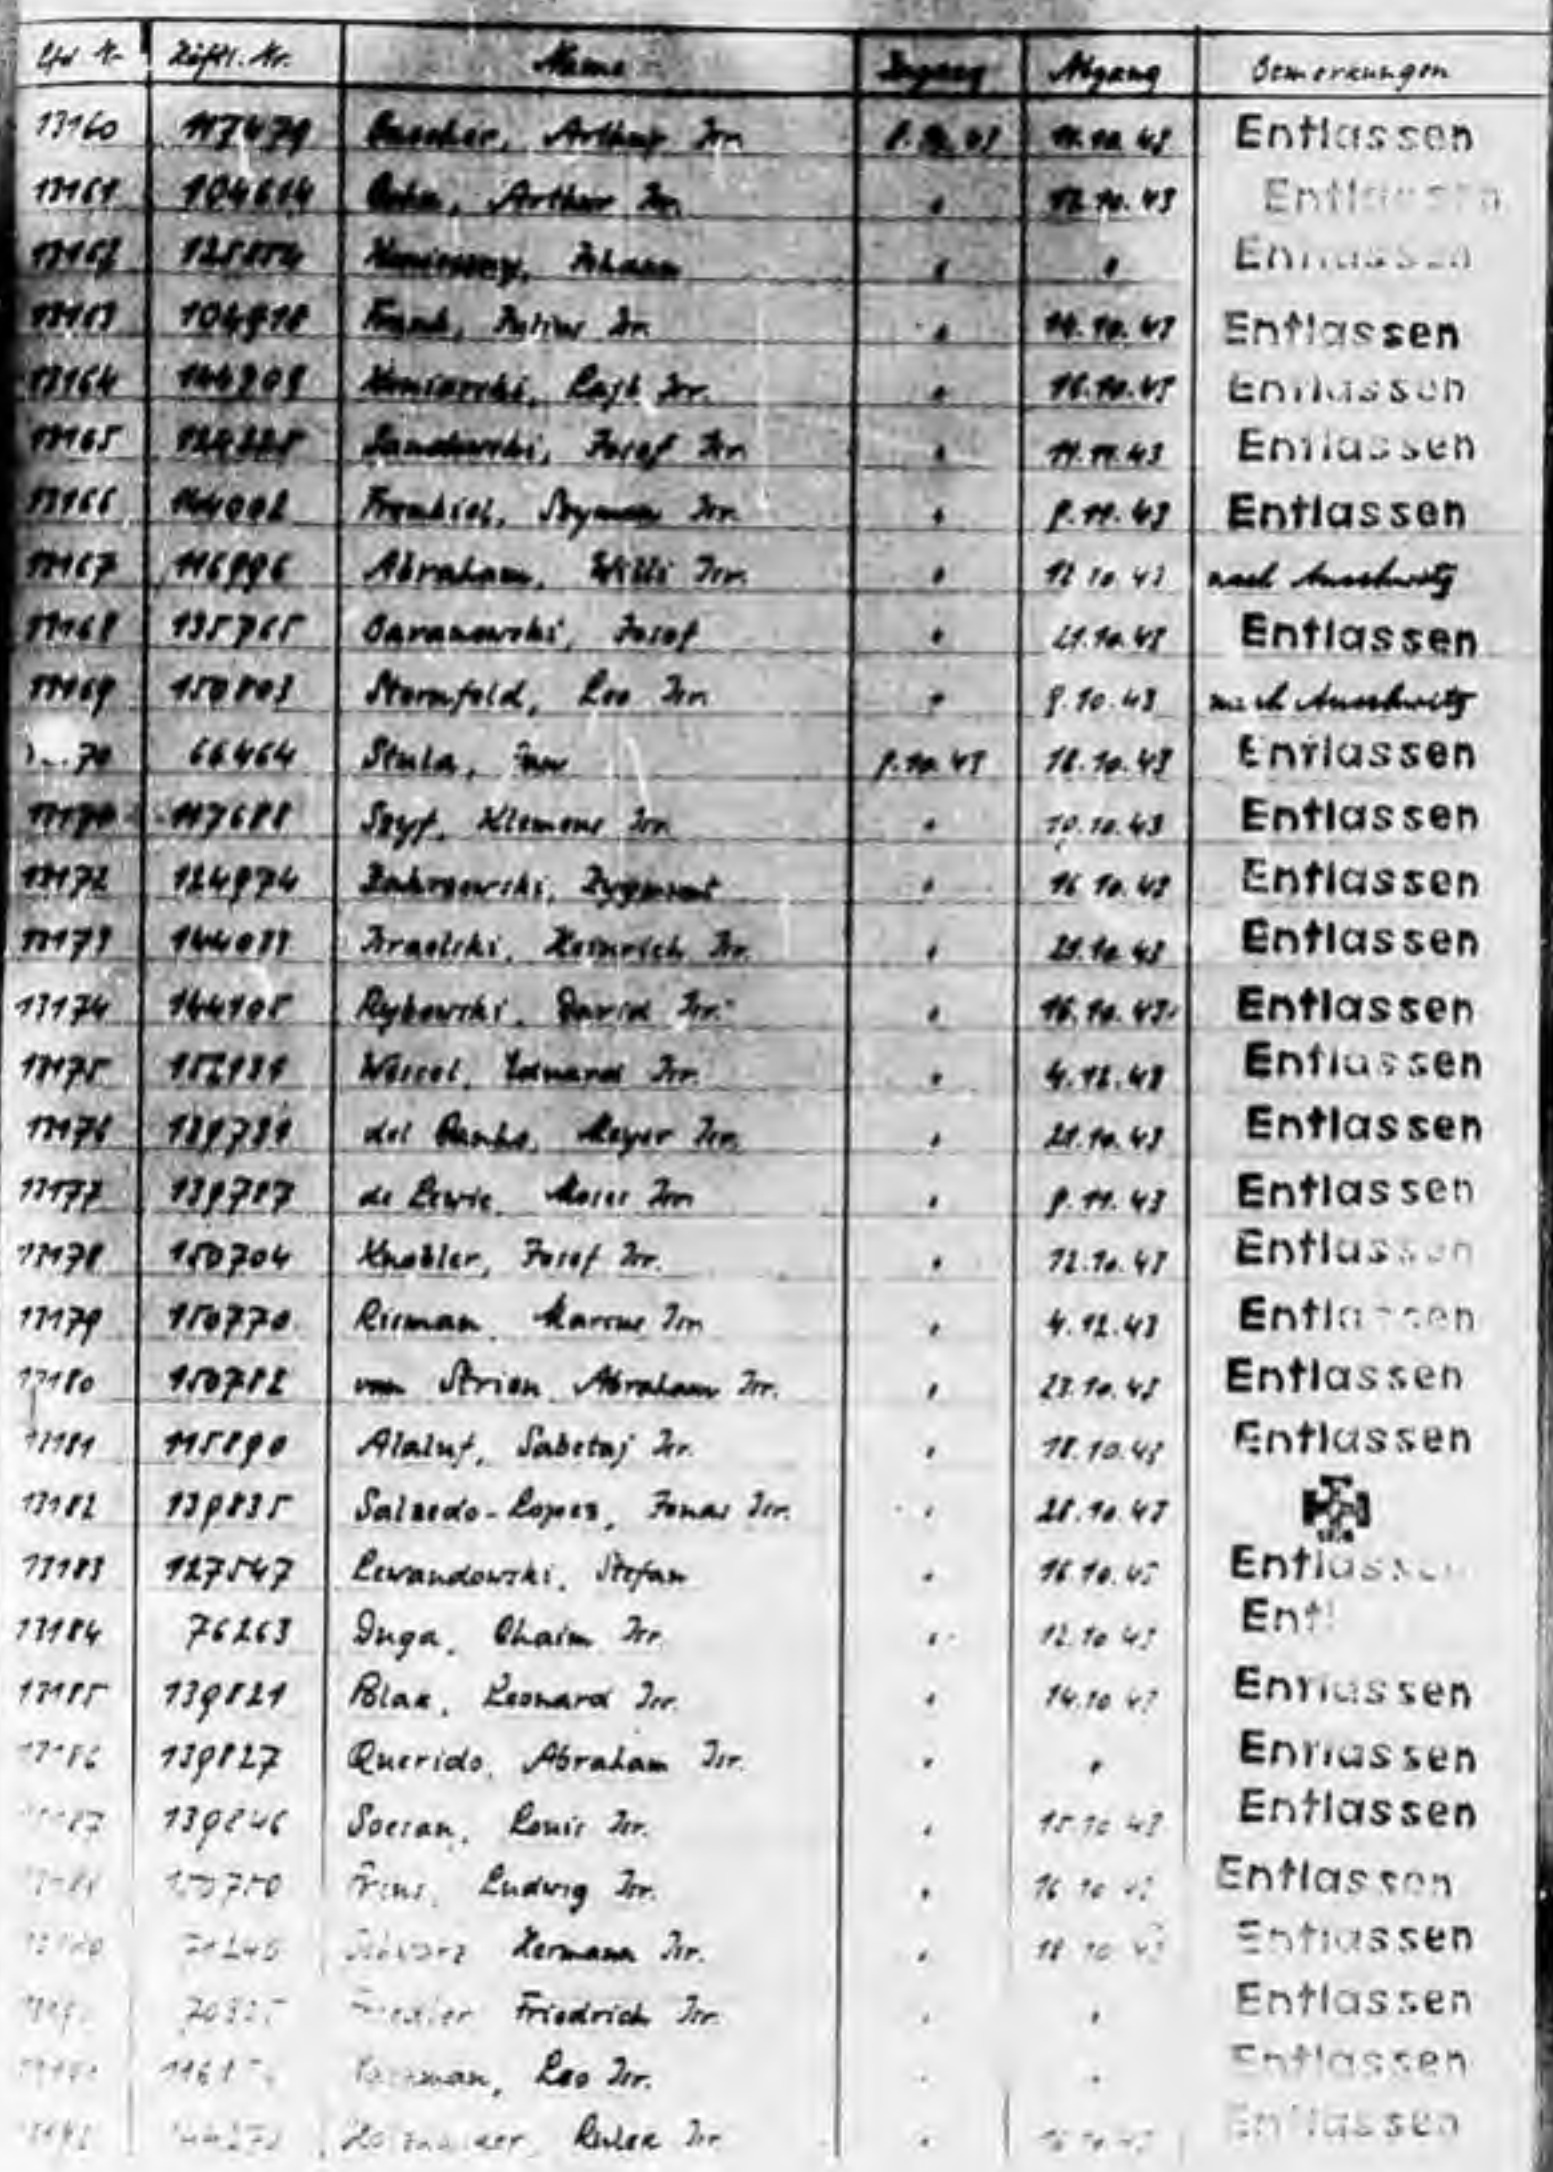 Lfd Nr. Häftl. Nr. Name Zugang Abgang Bemerkungen
13160 117479 Arthur Isr. 8.10.43 11.10.43 Entlassen
13161 104614 Arthur Isr. " 12.10.43 Entlassen
13162 Johann " " Entlassen
13163 104918 Frank, Julius Isr. " 14.10.43 Entlassen
13164 144209 Lajb Isr. " 16.10.43 Entlassen
13165 Josef Isr. " 11.11.43 Entlassen
13166 144002 Frenkiel, Szyman Isr. " 8.11.43 Entlassen
13167 116996 Abraham, Willi Isr. " 12.10.43 nach Auschwitz
13168 135765 Baranowski, Josef " 21.10.43 Entlassen
13169 150803 Sternfeld, Leo Isr. " 8.10.43 nach Auschwitz
70 66464 Stula, 8.10.43 18.10.43 Entlassen
13171 117688 Szyf, Klemens Isr. " 10.10.43 Entlassen
13172 124974 Zygmunt " 16.10.43 Entlassen
13173 144033 Israelski, Heinrich Isr. " 21.10.43 Entlassen
13174 144105 Rybowski, David Isr. " 16.10.43 Entlassen
13175 152131 Eduard Isr. " 4.12.43 Entlassen
13176 139731 del Meyer Isr. " 21.10.43 Entlassen
13177 139787 de Lewie Moses Isr. " 8.11.43 Entlassen
13178 150704 Knobler, Josef Isr. " 12.10.43 Entlassen
13179 150770 Marcus Isr. " 4.12.43 Entlassen
13180 150782 van Strien Abraham Isr. " 23.10.43 Entlassen
13181 115890 Alaluf, Sabetaj Isr. " 18.10.43 Entlassen
13182 139835 Salzedo-Lopes, Jonas Isr. " 28.10.43
13183 127547 Lewandowski, Stefan " 16.10.43 Entlassen
13184 76263 Duga, Chaim Isr. " 12.10.43 Entl
13185 139821 Polak, Leonard Isr. " 14.10.43 Entlassen
13186 139827 Querido, Abraham Isr. " " Entlassen
13187 139846 Soesan, Louis Isr. " 15.10.43 Entlassen
150750 Prins, Ludwig Isr. " 16.10.43 Entlassen
Schwarz Hermann Isr. " 18.10.43 Entlassen
Friedrich Isr. " " Entlassen
Leo Isr. " " Entlassen
Isr. " Entlassen